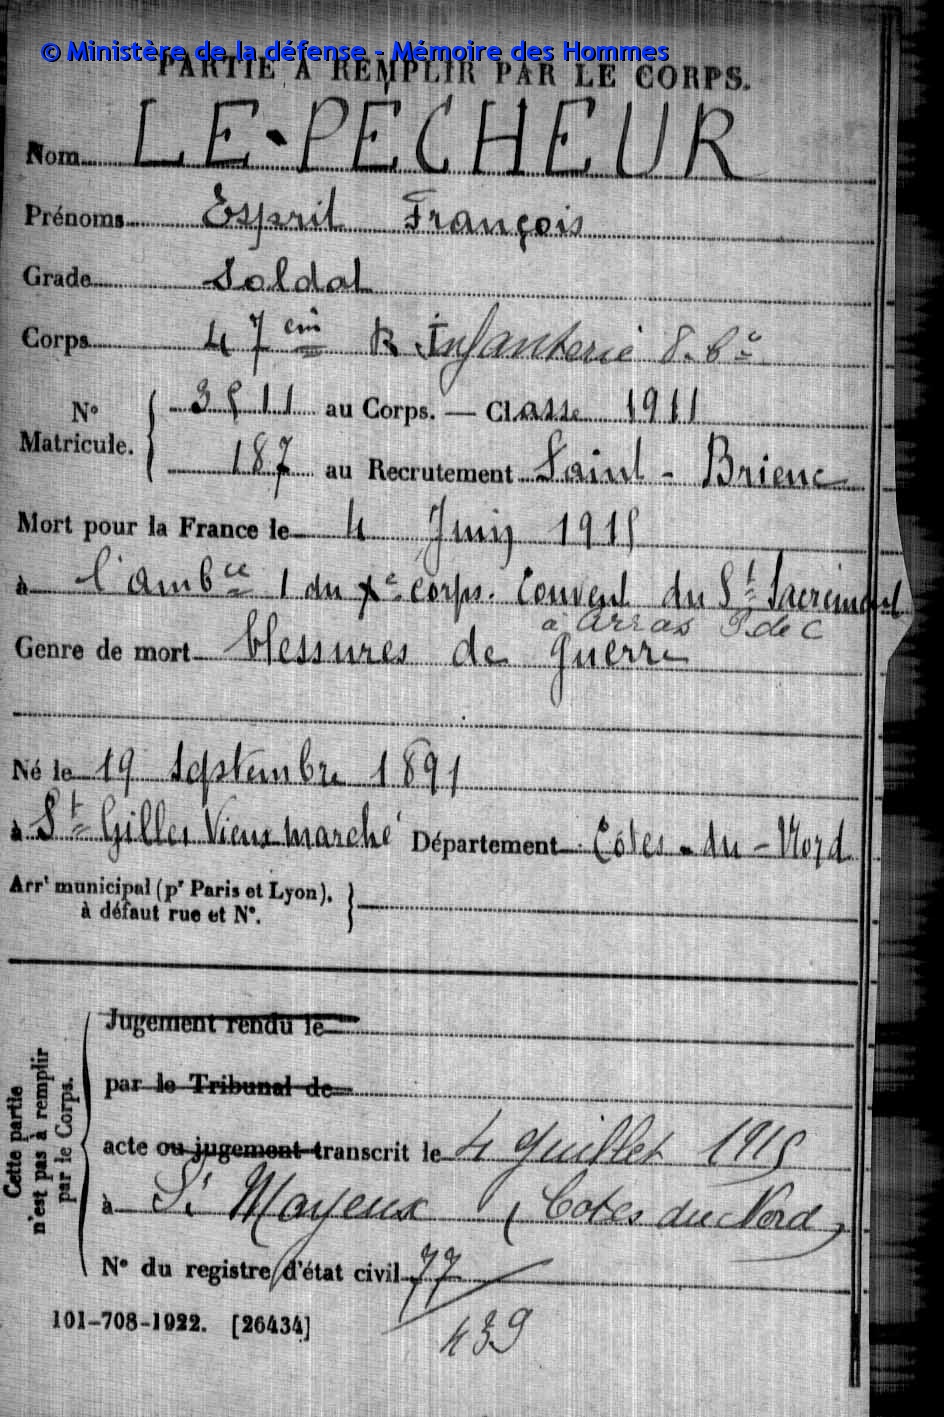 © Ministère de la défense - Mémoire des Hommes
PARTIE À REMPLIR PAR LE CORPS.
Nom LE-PÉCHEUR
Prénoms Esprit François
Grade Soldat
Corps 47 em R Infanterie 8. Cie
N° Matricule. 3511 au Corps. — Classe 1911
187 au Recrutement Saint-Brieuc
Mort pour la France le 4 Juin 1915
à l'ambce 1 du Xe corps. Couvent du St Sacrement
à Arras P de C
Genre de mort blessures de guerre
Né le 19 Septembre 1891
à St Gilles Vieux marché Département Côtes-du-Nord
Arrt municipal (pr Paris et Lyon),
à défaut rue et N°.
Cette partie
n'est pas à remplir
par le Corps.
Jugement rendu le
par le Tribunal de
acte ou jugement transcrit le 4 Juillet 1915
à St Mayeux (Cotes du Nord)
N° du registre d'état civil 77
439
101-708-1922. [26434]